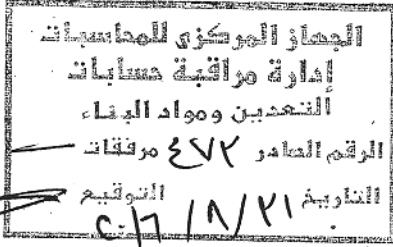 الجهاز المركزى للمحاسبات
إدارة مراقبة حسابات
التعدين ومواد البناء
الرقم الصادر ٤٧٢ مرفقات
التاريخ ٢١ / ٨ / ٢٠١٦ التوقيع